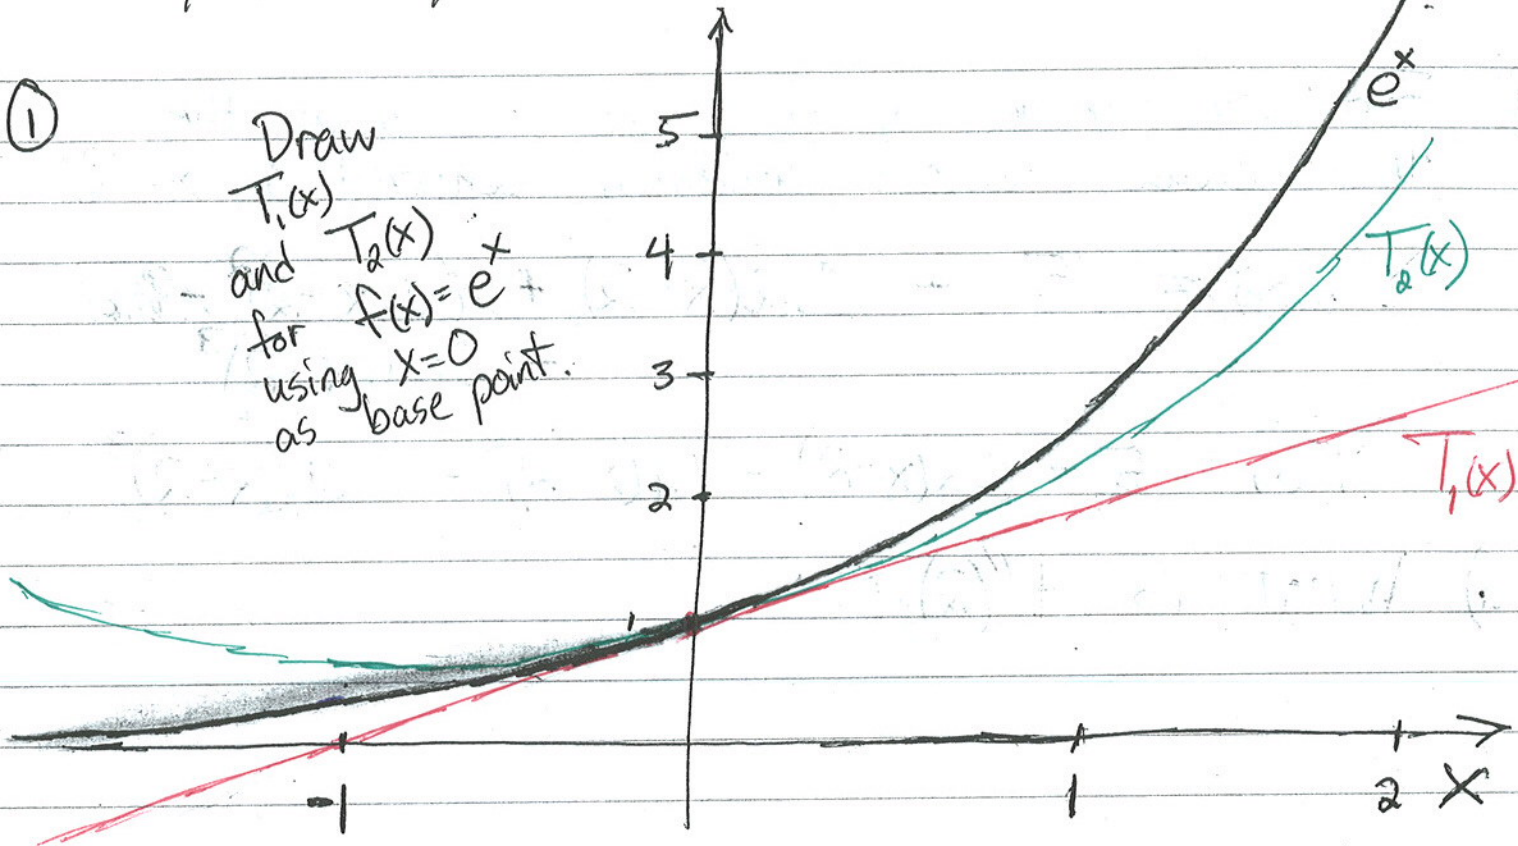 ①
Draw
T₁(x)
and T₂(x)
for f(x) = eˣ
using x=0
as base point.
5
4
3
2
1
eˣ
T₂(x)
T₁(x)
-1
1
2
X